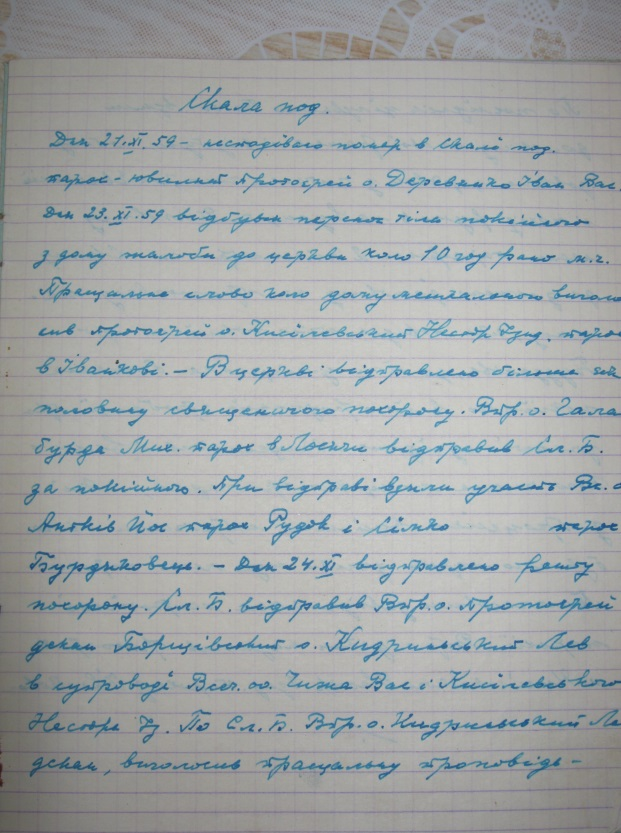 Скала под.
Дня 21.XI.59 – несподівано помер в Скалі под.
парох - ювилят протоєрей о. Деревянко Іван Вас.
Дня 23.XI.59 відбувся перенос тіла покійного
з дому жалоби до церкви коло 10 год рано м.ч.
Пращальне слово коло дому мешкального виголо
сив протоєрей о. Кисілевський Нестор парох
в Іванкові. – В церкві відправлено більше
половину священичого похорону. Впр. о. Гала
бурда Мих. парох в Лосячи відправив Сл. Б.
за покійного. При відправі взяли участь Вс. о
Антків Йос парох Рудок і Сілко парох
Бурдяковець. – Дня 24.XI відправлено решту
похорону. Сл. Б. відправив Впр. о. протоєрей
декан Борщівський о. Кидриньський Лев
в супроводі Всеч. оо. Чижа Вас і Кисілевського
Нестора По Сл. Б. Впр. о. Кидриньський Ле
декан, виголосив пращальну проповідь –